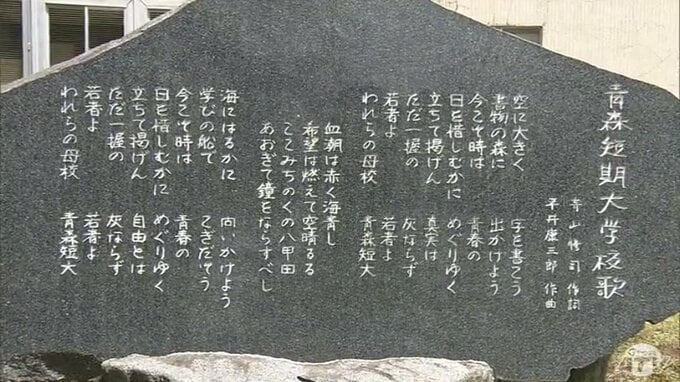 青森短期大学校歌
寺山修司 作詞
平井康三郎 作曲
空に大きく 字を書こう
書物の森に 出かけよう
今こそ時は 青春の
日を惜しむかに めぐりゆく
立ちて掲げん 真実は
ただ一握の 灰ならず
若者よ 若者よ
われらの母校 青森短大
血潮は赤く海青し
希望は燃えて空晴るる
ここみちのくの八甲田
あおぎて鐘をならすべし
海にはるかに 向いかけよう
学びの船で こぎだそう
今こそ時は 青春の
日を惜しむかに めぐりゆく
立ちて掲げん 自由とは
ただ一握の 灰ならず
若者よ 若者よ
われらの母校 青森短大